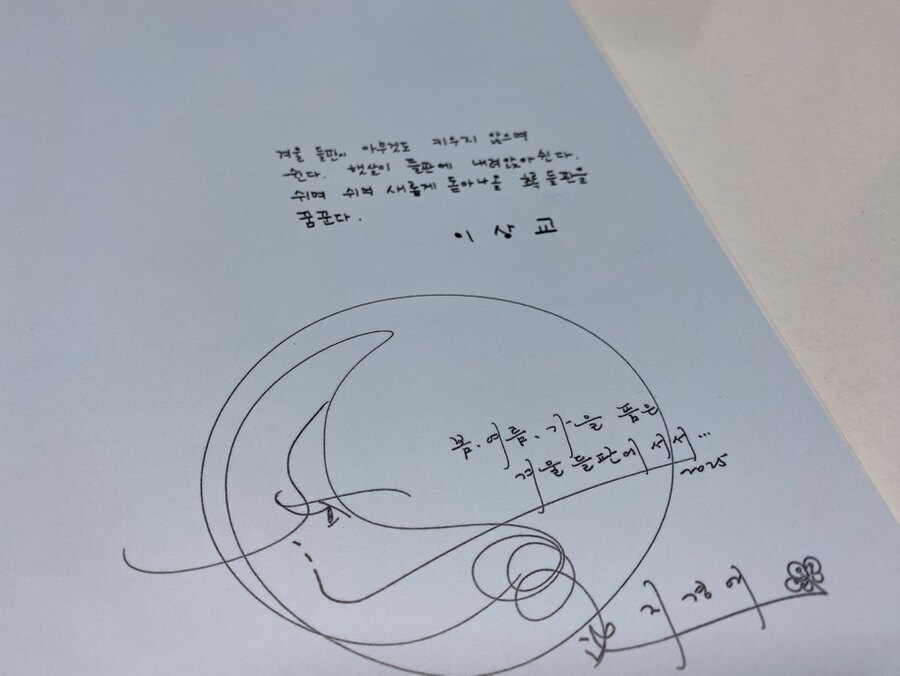 겨울 들판이 아무것도 키우지 않으며
쉰다. 햇살이 들판에 내려앉아 쉰다.
쉬며 쉬며 새롭게 돋아나올 초록 들판을
꿈꾼다.
이상교
봄.여름.가을 품은
겨울 들판에 서서...
2025
지경애